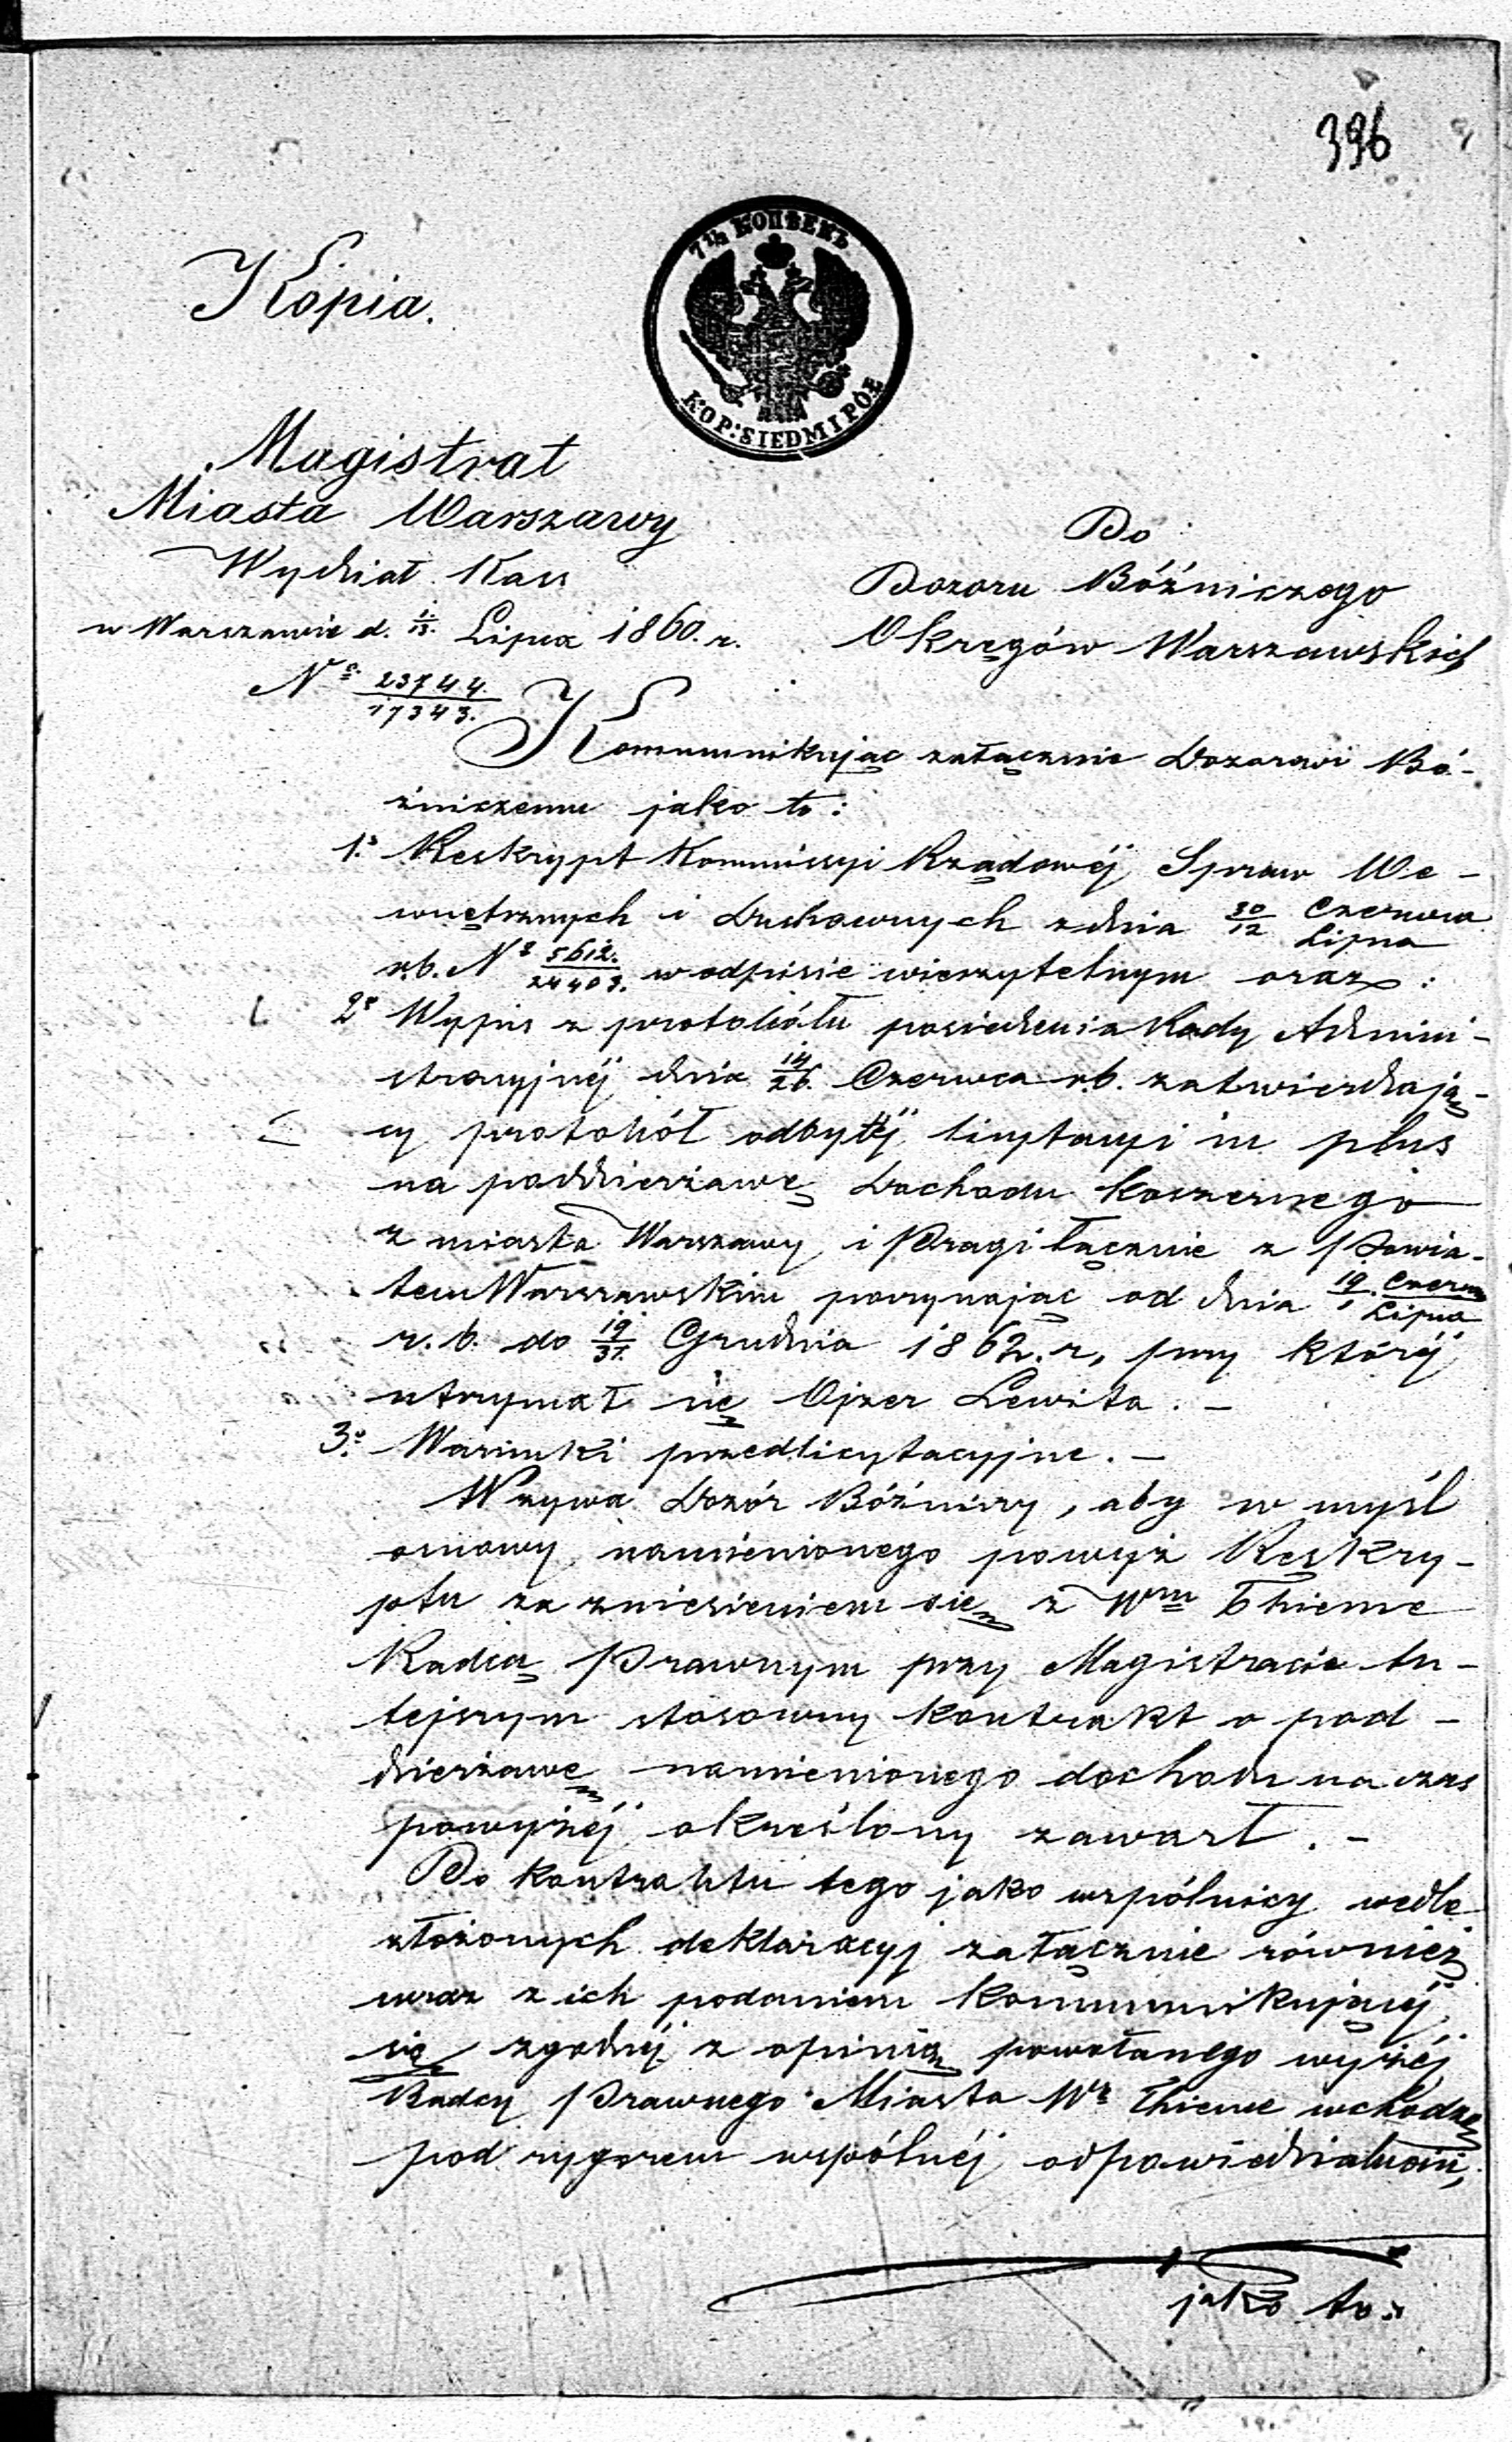 396
7 1/2 КОПѢЕКЪ
KOP: SIEDM I PÓŁ
Kopia.
Magistrat
Miasta Warszawy
Wydział Kass
w Warszawie d. 1/13. Lipca 1860. r.
Nº 23744./17343.
Do
Dozoru Bóźniczego
Okręgów Warszawskich
Kommunikując załącznie Dozorowi Bó-
źniczemu jako to:
1.º Reskrypt Kommissyi Rządowéj Spraw We-
wnętrznych i Duchownych z dnia 30/12 Czerwca/Lipca
r.b. Nº 5612./24409. w odpisie wierzytelnym oraz:
2º Wypis z protokółu posiedzenia Rady Admini-
stracyjnéj dnia 14/26. Czerwca r.b. zatwierdzają-
cy protokół odbytéj licytacyi in plus
na poddzierżawę Dochodu koszernego
z miasta Warszawy i Pragi łącznie z Powia-
tem Warszawskim poczynając od dnia 19/1 Czerw/Lipca
r.b. do 19/31. Grudnia 1862. r, przy któréj
utrzymał się Ojzer Lewita. -
3.º Warunki przedlicytacyjne. -
Wzywa Dozór Bóźniczy, aby w myśl
osnowy namienionego powyż Reskry-
ptu za zniesieniem się z Wm Thieme
Radcą Prawnym przy Magistracie tu-
tejszym stosowny kontrakt o pod-
dzierżawę namienionego dochodu na czas
powyżéj określony zawarł. -
Do kontraktu tego jako wspólnicy wedle
złożonych deklaracyj załącznie również
wraz z ich podaniem kommunikującéj
się zgodnéj z opinią powołanego wyżéj
Radcy Prawnego Miasta Wº Thieme wchodzą
pod rygorem wspólnéj odpowiedzialności,
jako to: